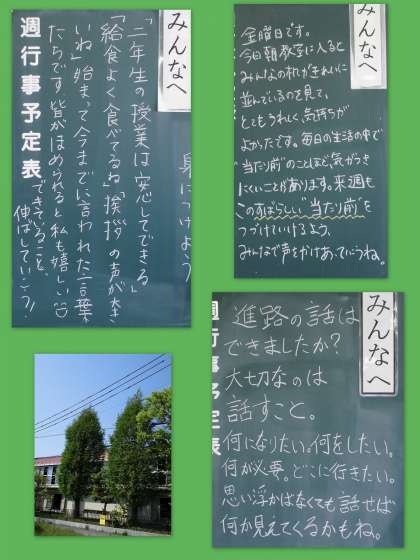 みんなへ
身につけよう
「二年生の授業は安心してできる」
「給食よく食べてるね」「挨拶の声が大き
いね」始まって今までに言われた言葉
たちです。皆がほめられると私も嬉しい
できていること、
伸ばしていこう!
週行事予定表
みんなへ
金曜日です。
今日朝教室に入ると
みんなの机がきれいに
並んでいるのを見て、
とてもうれしく気持ちが
よかったです。毎日の生活の中で
"当たり前"のことほど気がつき
にくいことがあります。来週も
このすばらしい"当たり前"を
つづけていけるよう、
みんなで声をかけあっていこうね。
みんなへ
週行事予定表
進路の話は
できましたか?
大切なのは
話すこと。
何になりたい。何をしたい。
何が必要。どこに行きたい。
思い浮かばなくても話せば
何か見えてくるかもね。